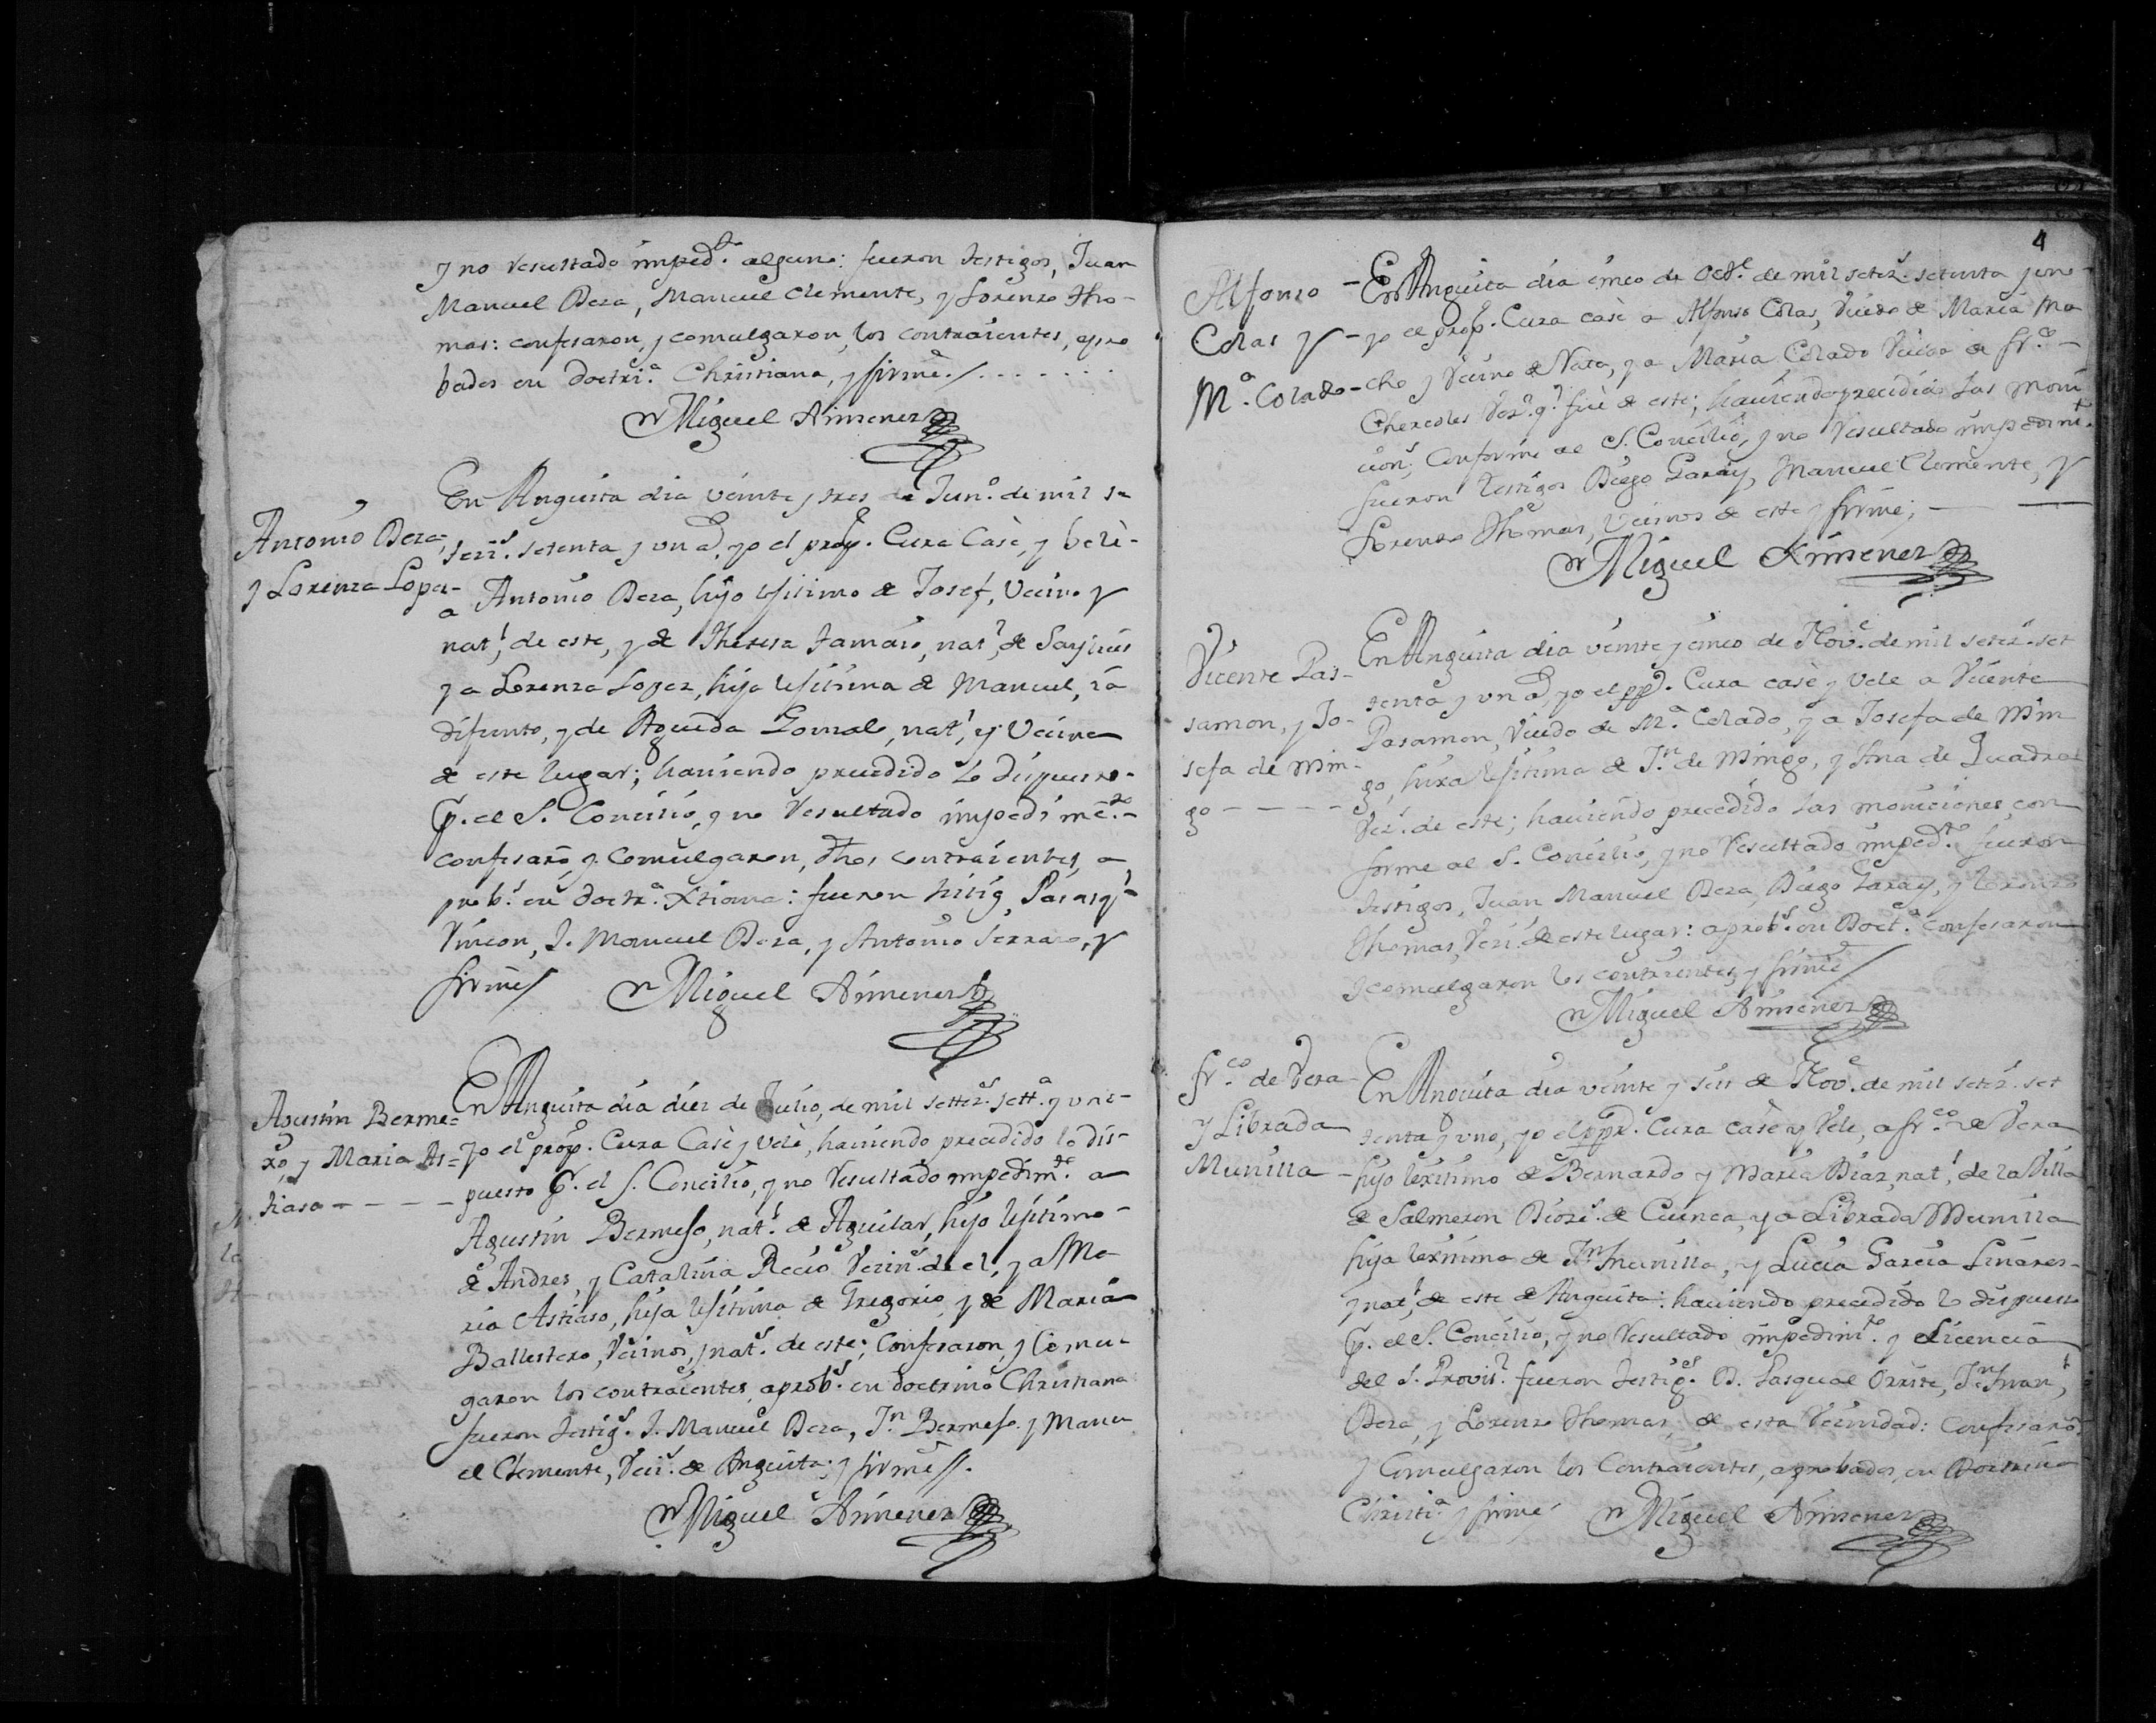 y no resultado imped.to alguno: fueron testigos, Juan
Manuel Deza, Manuel Clemente, y Lorenzo Tho-
mas: confesaron, y comulgaron, los contraientes, apro
bados en doctri.a Christiana, y firmè./.......
Miguel Ximenez
Antonio Deza,
y Lorenza Lopez-
En Anguita dia veinte y tres de Jun.o de mil se
tez.s setenta y un a.s yo el prop.o Cura Casè, y belè-
a Antonio Deza, hijo lejitimo de Josef, Vecino y
nat.l de este, y de Theresa Tamaio, nat.l de
y a Lorenza Lopez, hija lejitima de Manuel, ia
difunto, y de Agueda Gonzalo, nat.l y Vecina
de este lugar; haviendo precedido lo dispuesto-
p.r el S. Concilio, y no resultado impedimē.to-
confesarō, y comulgaron, dhos contraientes, a
prob.s en doctr.a Xtiana: fueron
Rincon, J. Manuel Deza, y Antonio Serrano, y
firmè/ Miguel Ximenez
Agustin Berme=
xo, y Maria As=
tiaso - - - -
En Anguita dia diez de Julio, de mil settez.s sett.a y uno-
yo el prop.o Cura Casè y velè, haviendo precedido lo dis-
puesto p.r el S. Concilio, y no resultado impedim.to a
Agustin Bermejo, nat.l de Aguilar, hijo lejitimo-
de Andres, y Catalina Recio Vecin.s de el, y a Ma-
ria Astiaso, hija lejitima de Gregorio, y de Maria
Ballestero, Vecinos, y nat.s de este; Confesaron, y Comu-
garon los contraientes, aprob.s en doctrina Christiana
fueron testig.s J. Manuel Deza, J.n Bermejo y Manu
el Clemente, Veci.s de Anguita; y firmè//.
Miguel Ximenez
4
Alfonso -
Colas y -
M.a Colado -
En Anguita dia cinco de Oct.e de mil setez.s setenta y uno-
yo el prop.o Cura casè a Alfonso Colas, Viudo de Maria Ma
cho y Vecino de Nata, y a Maria Colado Viuda de fr.co-
Chercoles Vez.o q.e fuè de este; haviendo precedido las moni
cion.s conforme al S. Concilio, y no resultado impedim.to
fueron testigos Diego Garay, Manuel Clemente, y
Lorenzo Thomas, Vecinos de este y firmè; -
Miguel Ximenez
Vicente Pas-
samon, y Jo-
sefa de Min-
go - - - -
En Anguita dia veinte y cinco de Nov.e de mil setez.s set
tenta y un a.s yo el pp.o Cura casè y velè a Vicente
Pasamon, Viudo de M.a Colado, y a Josefa de Min
go, hixa lejitima de J.n de Mingo, y Ana de Quadra
Vez.s de este; haviendo precedido las moniciones con
forme al S. Concilio, y no resultado imped.to fueron
testigos, Juan Manuel Deza, Diego Garay, y Lorenzo
Thomas, Veci.s de este lugar: aprob.s en Doct.a confesaron
y comulgaron los contraientes, y firmè/
Miguel Ximenez
fr.co de Vera
y Librada
Munilla -
En Anguita dia veinte y seis de Nov.e de mil setez.s set
tenta y uno, yo el ppr.o Cura casè y Velè, a fr.co de Vera
hijo lexitimo de Bernardo y Maria Diaz, nat.l de la Villa
de Salmeron Dioz.s de Cuenca, y a Librada Munilla
hija lexitima de J.n Munilla, y Lucia Garcia Linares-
y nat.l de este de Anguita: haviendo precedido lo dispuesto
p.r el S. Concilio, y no resultado impedim.to y Licencia
del S. Provis.r fueron testig.s D. Pasqual Orrite, J.n Man.l
Deza, y Lorenzo Thomas, de esta Vecindad: Confesarō
y Comulgaron los Contraientes, aprobados en Doctrina
Christi.a y firmè Miguel Ximenez